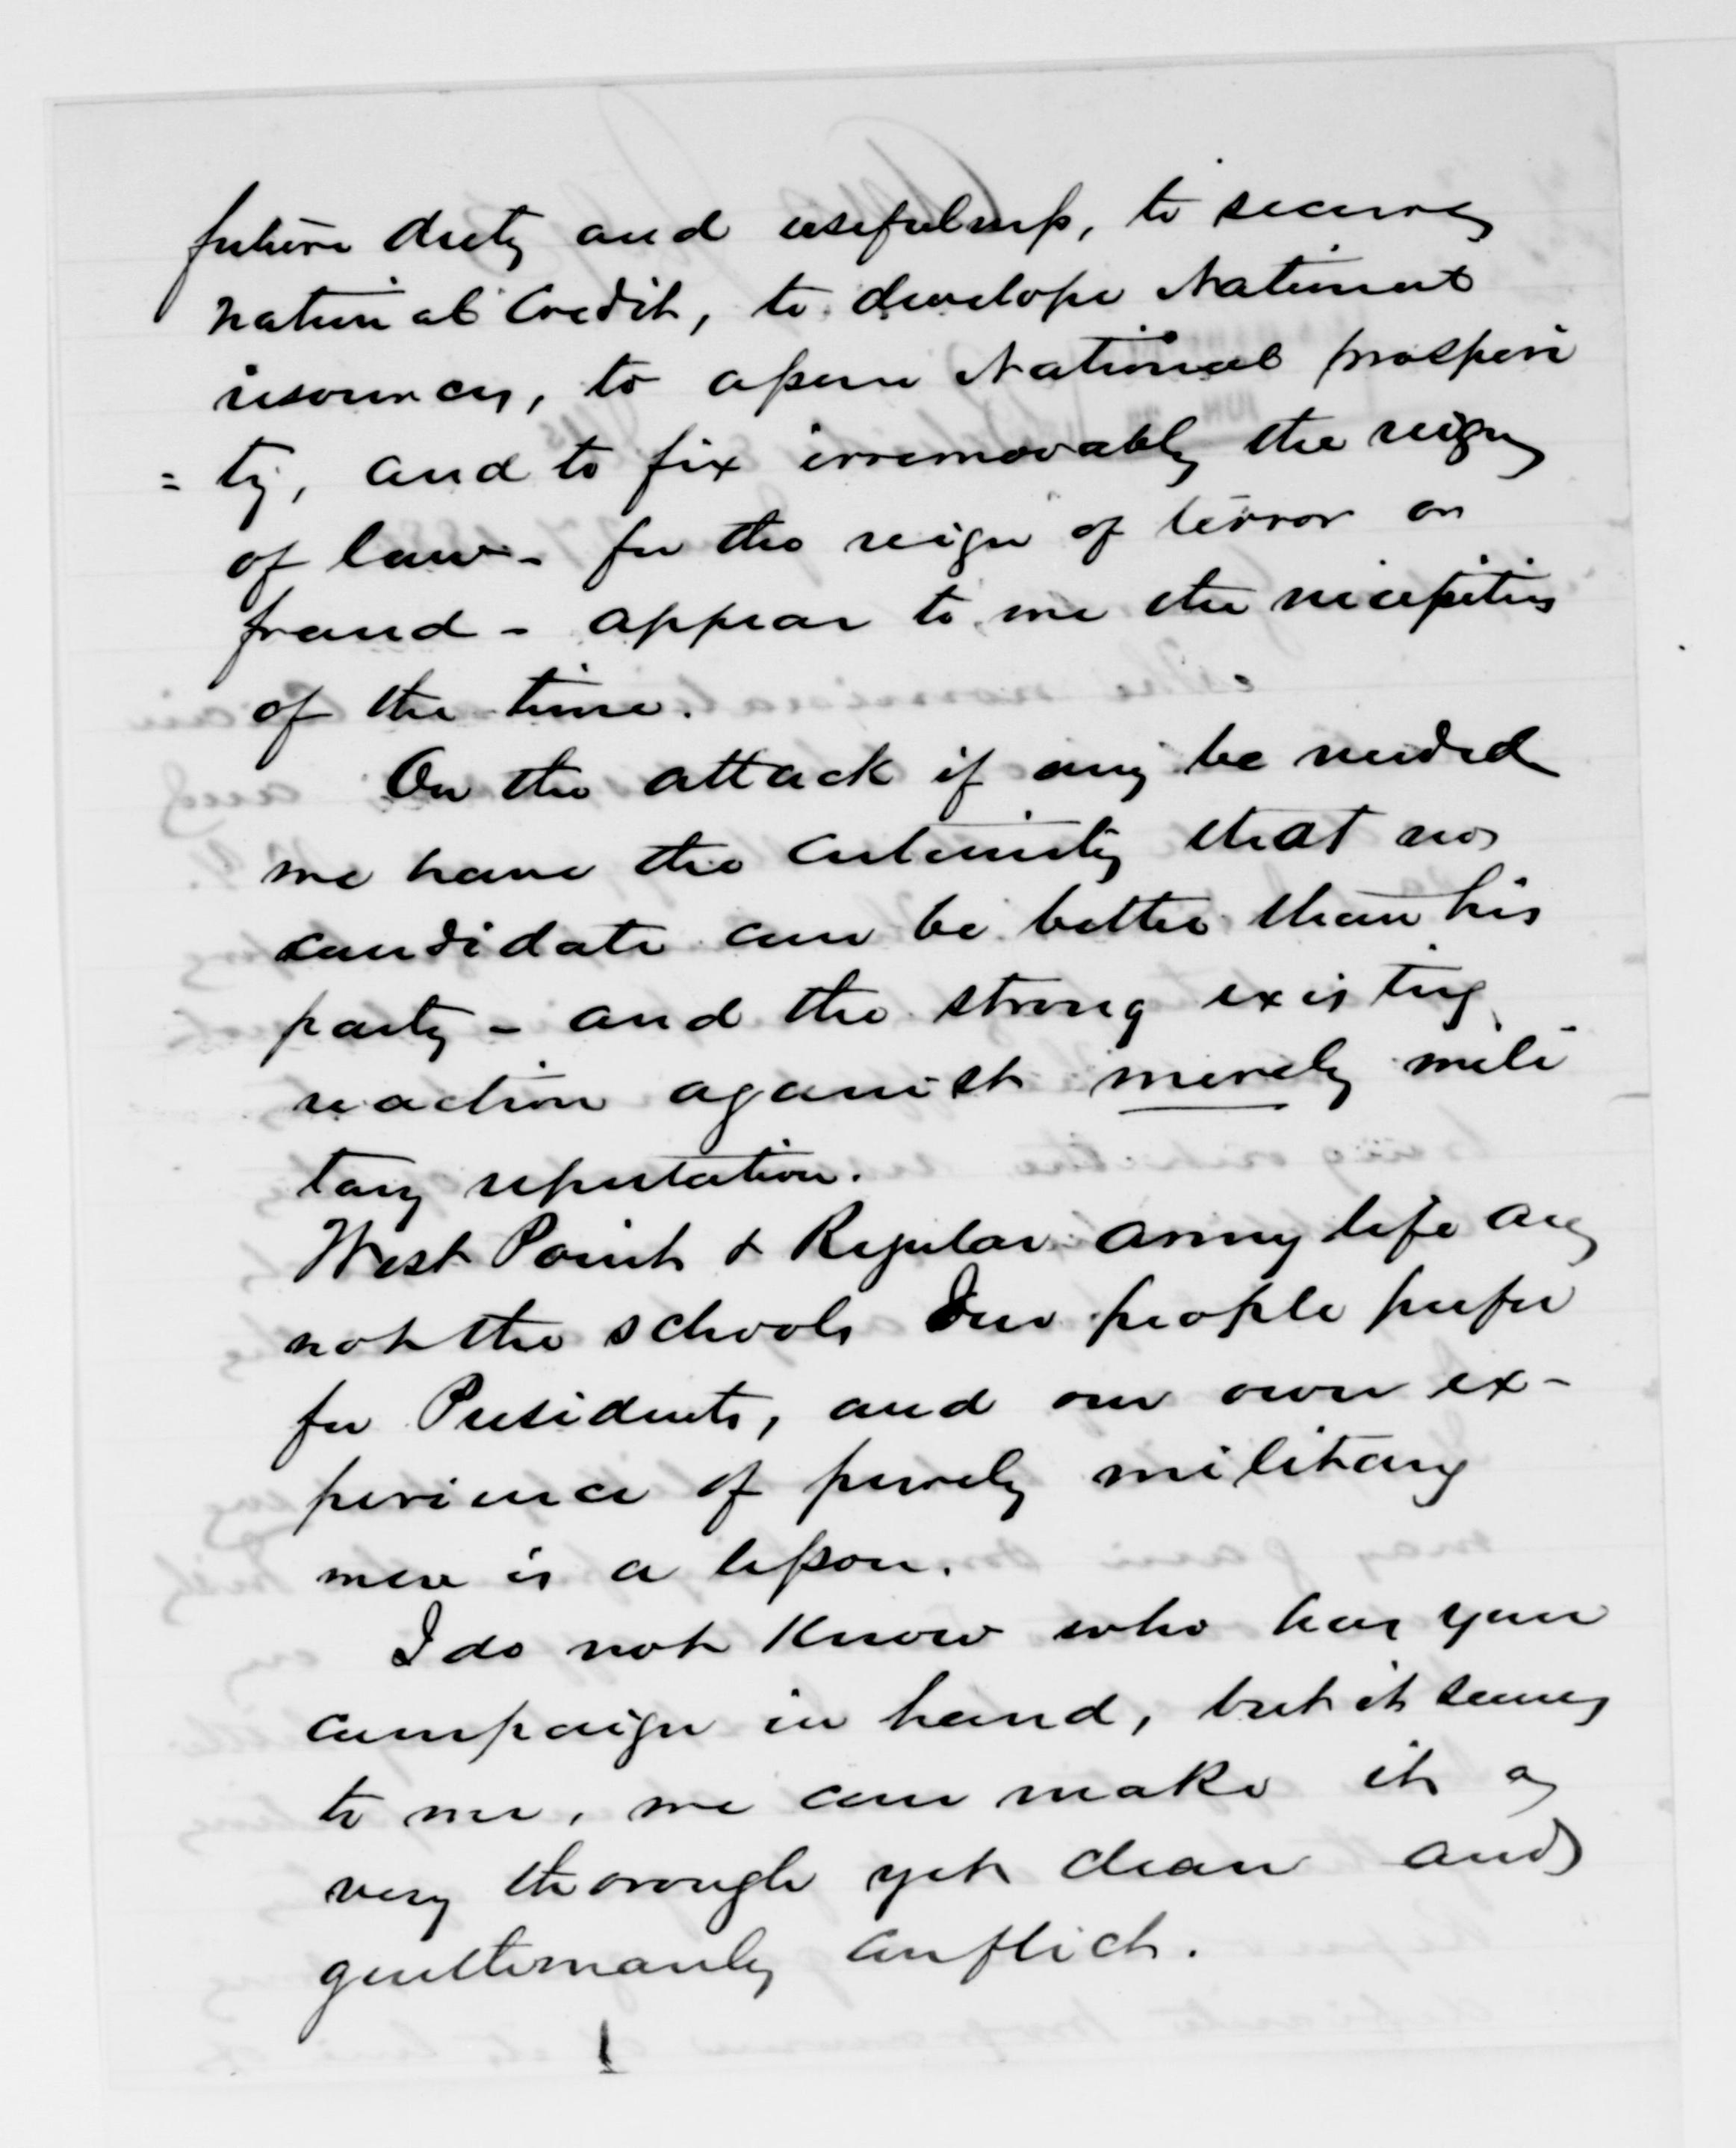 future duty and usefulness, to secure
national Credit, to develope National
resources, to assure National prosperi
= ty, and to fix irremovably the reign
of law - for the reign of terror or
fraud - appear to me the necessities
of the time.
On the attack if any be needed
we have the certainty that no
candidate can be better than his
party - and the strong existing
reaction against merely mili
tary reputation.
West Point & Regular army life are
not the schools our people prefer
for Presidents, and our own ex-
perience of purely military
men is a lesson.
I do not know who has your
campaign in hand, but it seems
to me, we can make it a
very thorough yet clean and
gentlemanly conflict.